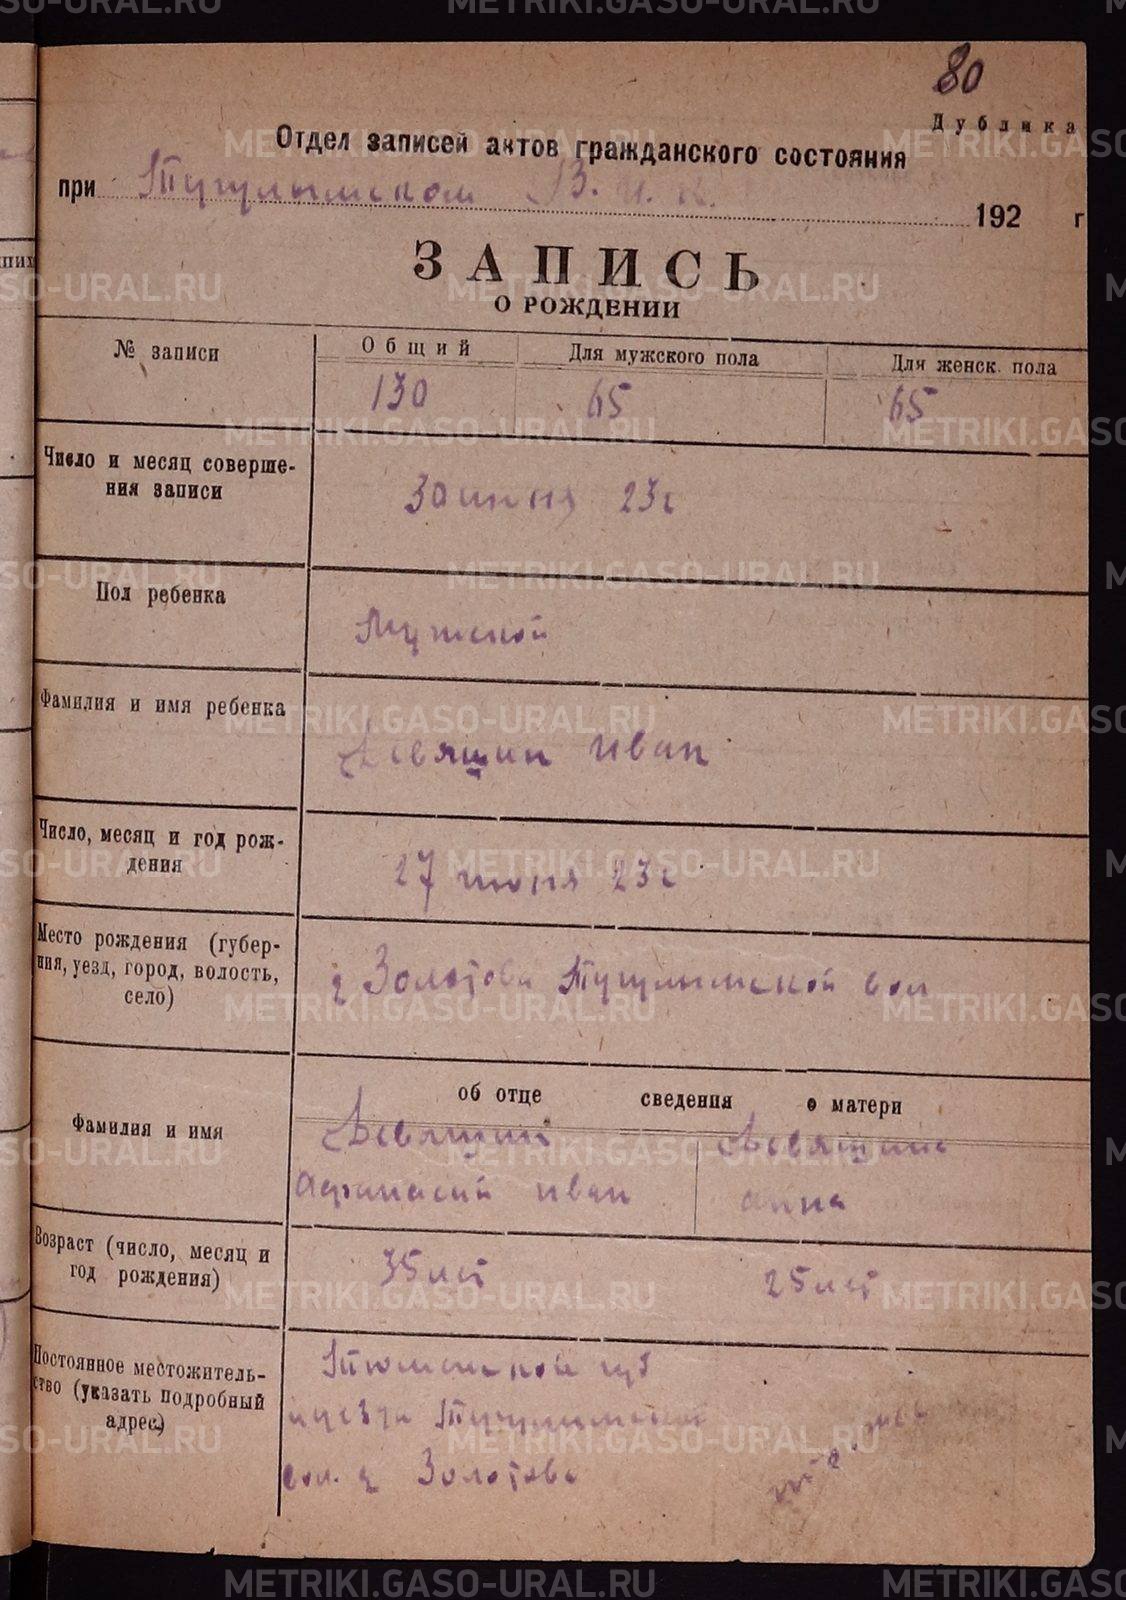 80
Дублика
Отдел записей актов гражданского состояния
при Тугулымском В. И. К. 192 г
ЗАПИСЬ
О РОЖДЕНИИ
№ записи
Общий
Для мужского пола
Для женск. пола
130
65
65
Число и месяц соверше-
ния записи
30 июня 23г
Пол ребенка
Мужской
Фамилия и имя ребенка
Девяшин Иван
Число, месяц и год рож-
дения
27 июня 23г
Место рождения (губер-
ния, уезд, город, волость,
село)
д Золотова Тугулымской вол
об отце сведения о матери
Фамилия и имя
Девяшин
Афанасий Иван
Девяшина
Анна
Возраст (число, месяц и
год рождения)
35 лет
25 лет
Постоянное местожитель-
ство (указать подробный
адрес)
Тюменской губ
и уезда Тугулымской
вол. д Золотова
METRIKI.GASO-URAL.RU